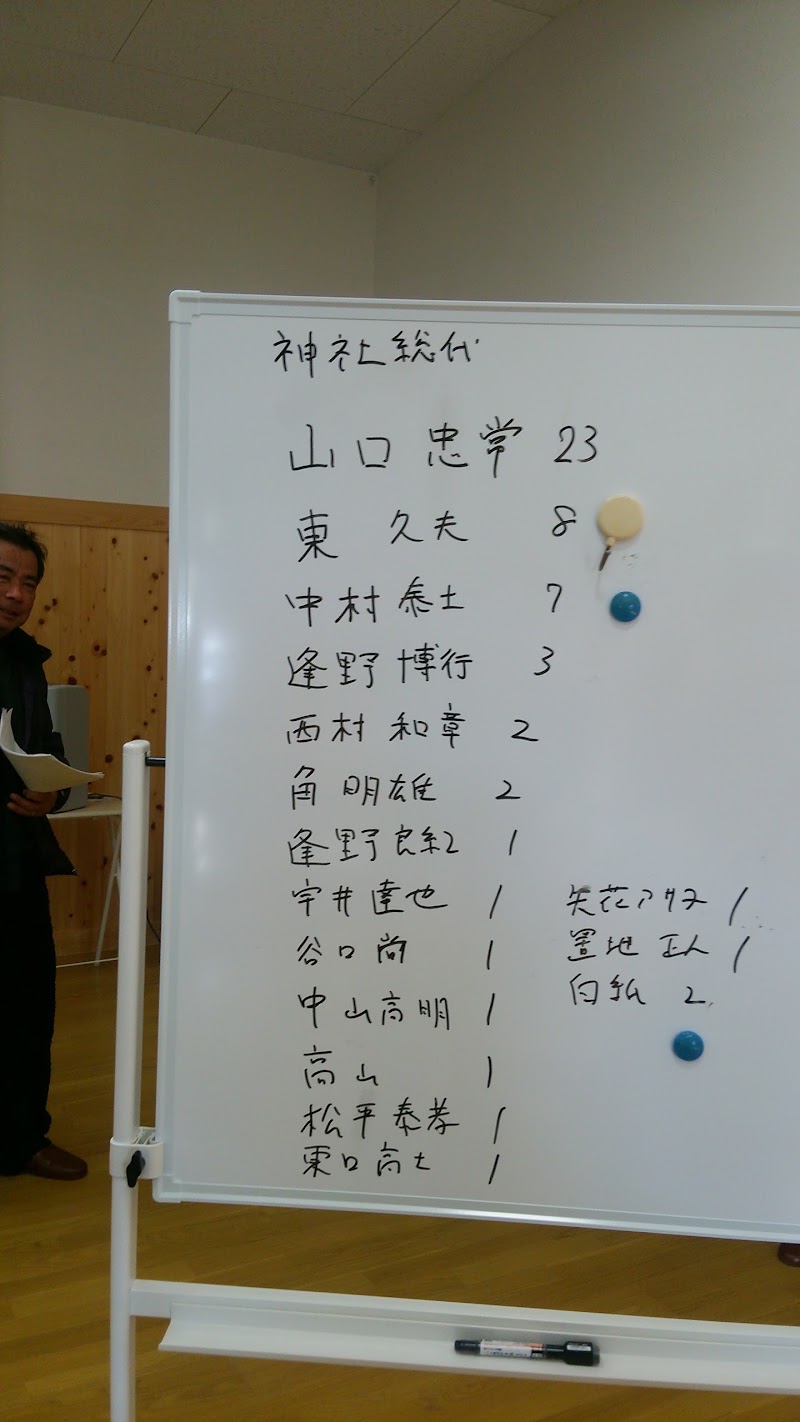 神社総代
山口 忠常 23
東 久夫 8
中村 泰士 7
逢野 博行 3
西村 和章 2
角 明雄 2
逢野 良紀 1
宇井達也 1
谷口尚 1
中山高明 1
高山 1
松平泰孝 1
東口高士 1
矢花アサヌ 1
置地 正人 1
白紙 2